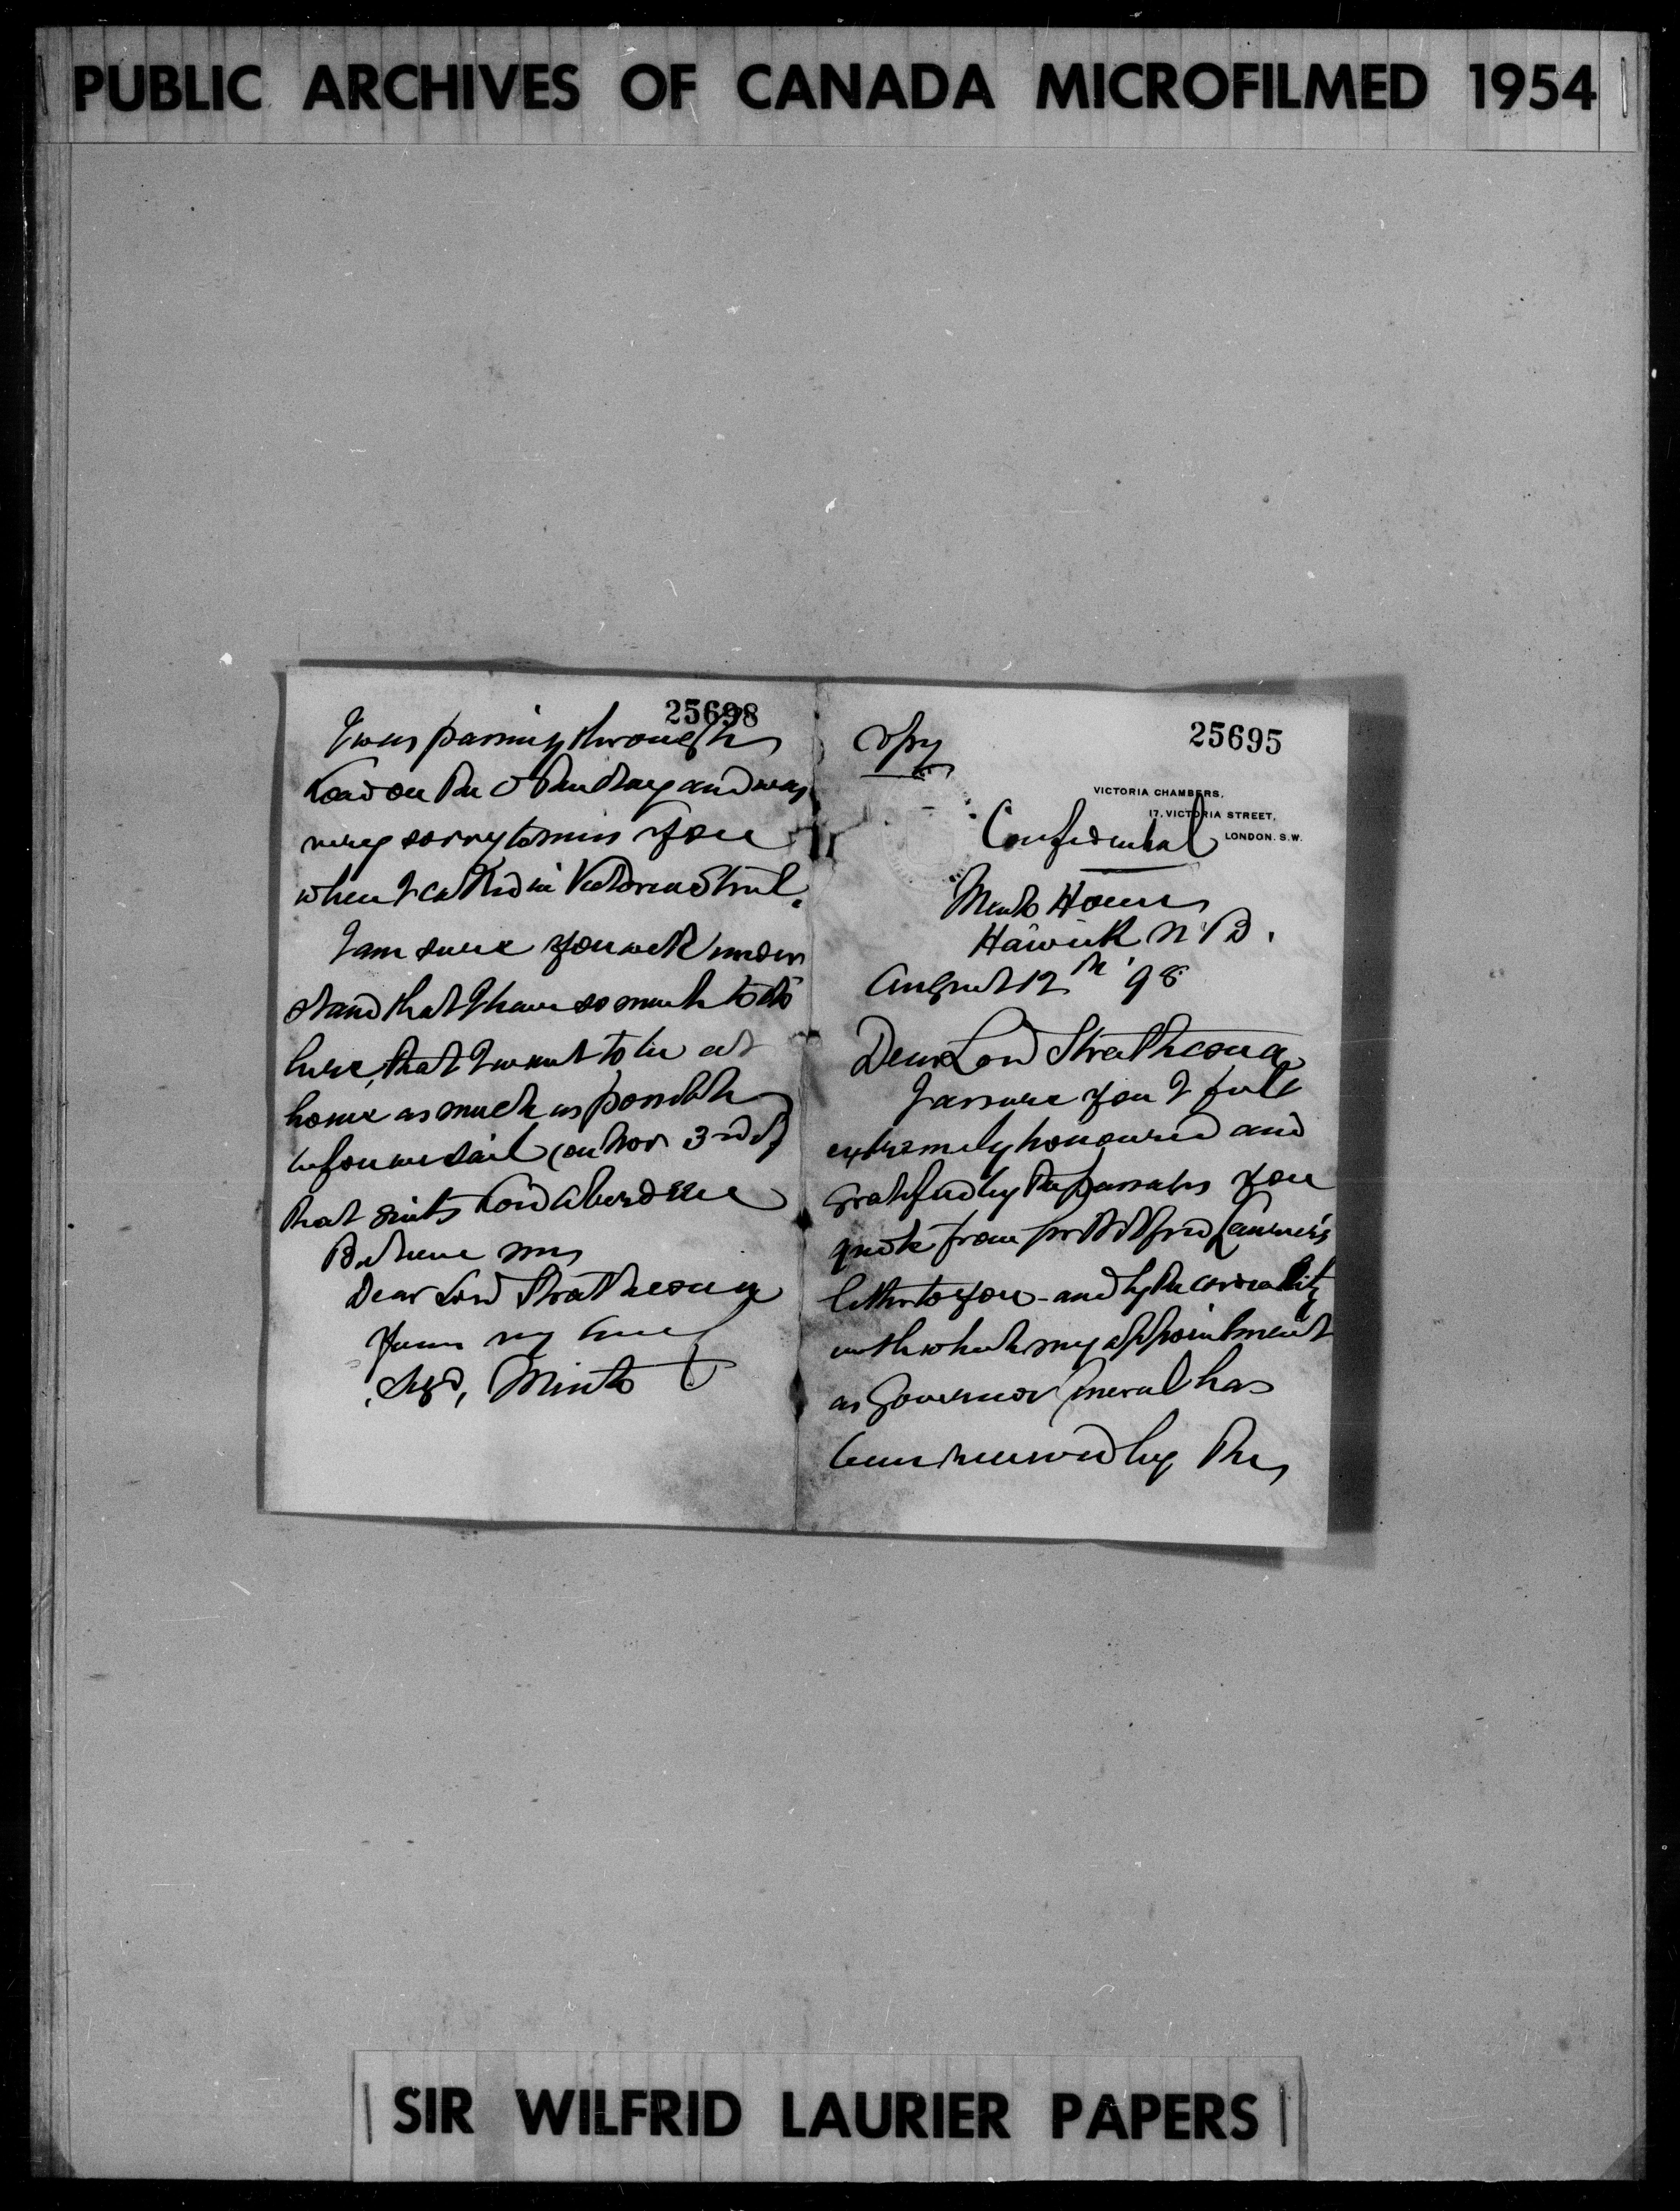 PUBLIC ARCHIVES OF CANADA MICROFILMED 1954
25698
I was passing through
London the other day and was
very sorry to miss you
when I called in Victoria Street.
I am sure you will under
stand that I have so much to do
here, that I want to be at
home as much as possible
before we sail (on Nov 3rd if
that suits Lord Aberdeen
Believe me
Dear Lord Strathcona
Yours very truly
Sgd, Minto
25695
Copy
VICTORIA CHAMBERS,
17, VICTORIA STREET,
LONDON. S.W.
Confidential
Minto House
Hawick N.B.
August 12th '98
Dear Lord Strathcona
I assure you I feel
extremely honoured and
gratified by the passages you
quote from Sir Wilfrid Laurier's
letter to you - and by the cordiality
with which my appointment
as Governor General has
been received by the
SIR WILFRID LAURIER PAPERS